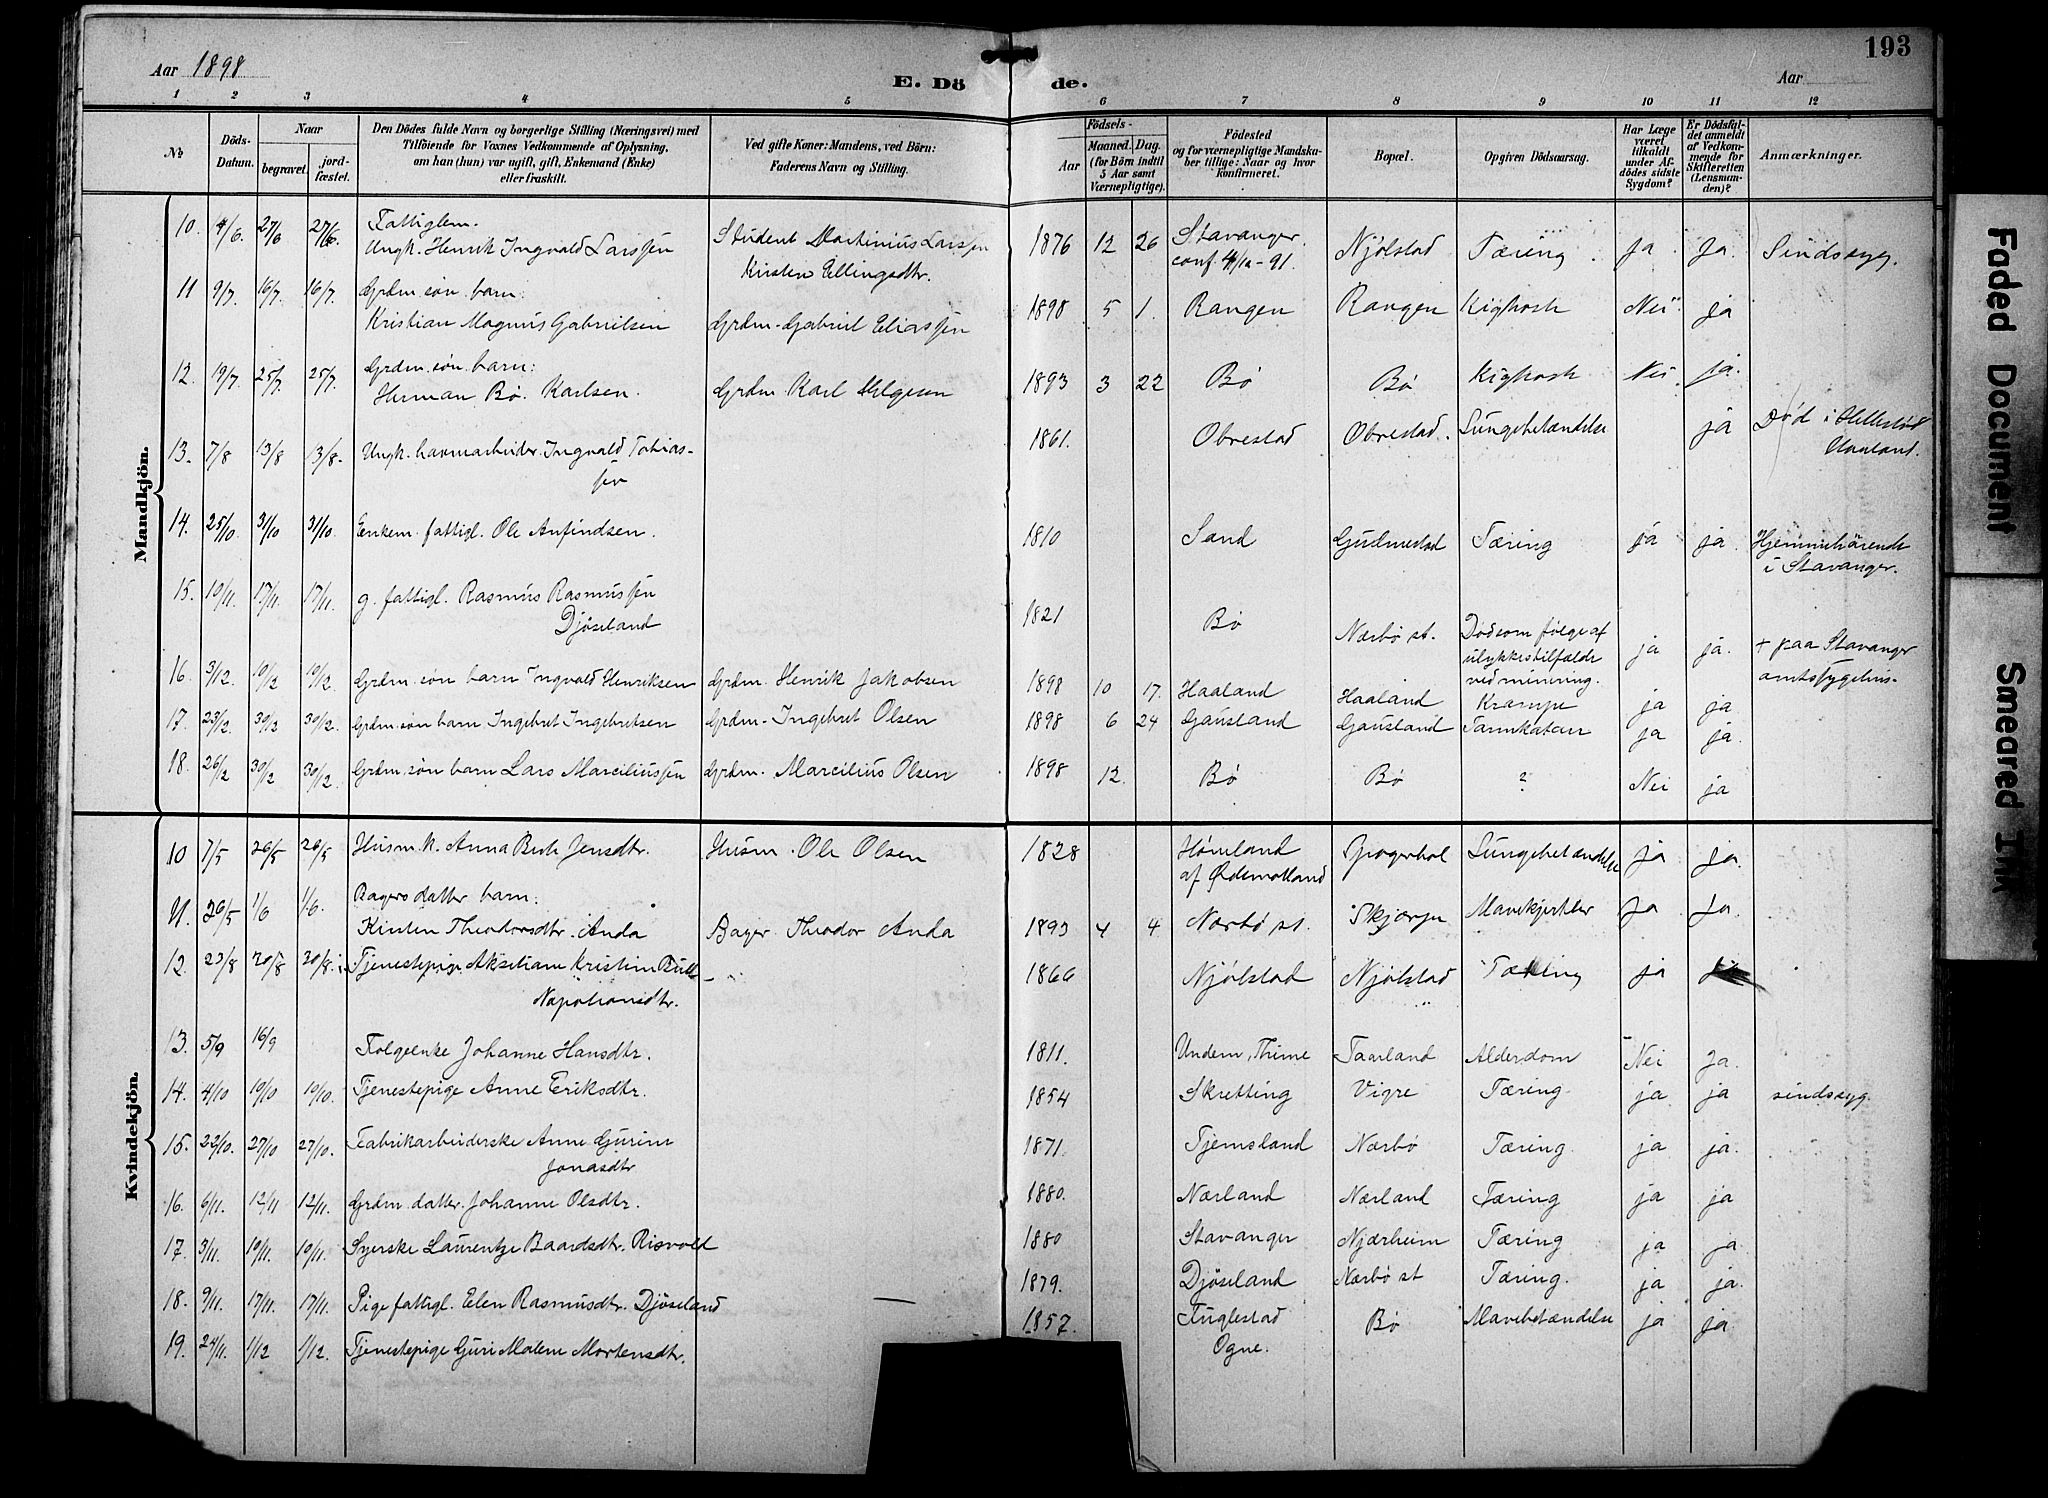 193
Aar 1898
E. Dö de.
Aar
1 2 3 4 5 6 7 8 9 10 11 12
No
Döds-Datum.
Naar
begravet.
jord-fæstet.
Den Dödes fulde Navn og borgerlige Stilling (Næringsvei) med
Tilföiende for Voxnes Vedkommende af Oplysning,
om han (hun) var ugift, gift, Enkemand (Enke)
eller fraskilt.
Ved gifte Koner: Mandens, ved Börn:
Faderens Navn og Stilling.
Födsels-
Aar
Maaned. Dag.
(for Börn indtil
5 Aar samt
Værnepligtige).
Födested
og for værnepligtige Mandska-
ber tillige: Naar og hvor
konfirmeret.
Bopæl.
Opgiven Dödsaarsag.
Har Læge
været
tilkaldt
under Af-
dödes sidste
Sygdom?
Er Dödsfal-
det anmeldt
af Vedkom-
mende for
Skifteretten
(Lensman-
den)?
Anmærkninger.
Mandkjön.
10. 4/6. 27/6 27/6. Fattiglem. Ungk. Henrik Ingvald Larssen Student Martinius Larssen Kirsten Ellingsdtr. 1876 12 26 Stavanger. conf. 4/10-91. Njølstad Tæring. ja Ja. Sindssyg.
11 9/7. 16/7. 16/7. Grdm. søn. barn: Kristian Magnus Gabrielsen Grdm. Gabriel Eliassen 1898 5 1. Rangen Rangen Kighoste Nei ja
12. 19/7. 25/7 25/7. Grdm. søn. barn: Herman Bø. Karlsen. Grdm. Karl Helgesen 1893 3 22 Bø Bø Kighoste Nei. ja.
13. 7/8 13/8 13/8. Ungk. havnarbeider. Ingvald Tobias-
sen 1861. Obrestad Obrestad. Lungebetændelse ja Død i Hellestø Haaland.
14. 25/10. 31/10 31/10. Enkem. fattigl. Ole Anfindsen. 1810 Sand Gudmestad Tæring ja ja. Hjemmehörende i Stavanger.
15. 10/11. 17/11. 17/11. g. fattigl. Rasmus Rasmussen Djöseland 1821 Bø Nærbø st. Död som følge af ulykkestilfælde ved minering. ja ja. + paa Stavanger amtssygehus.
16. 3/12. 10/12 10/12. Grdm. søn barn Ingvald Henriksen Grdm. Henrik Jakobsen 1898 10 17. Haaland Haaland Krampe ja ja
17. 23/12. 30/12 30/12. Grdm. søn barn Ingebret Ingebretsen Grdm. Ingebret Olsen 1898 6 24 Gausland Gausland ja ja.
18. 26/12 30/12 30/12. Grdm. søn barn Lars Marciliussen Grdm. Marcilius Olsen 1898 12. Bø Bø ? Nei ja
Kvindekjön.
10 7/5 26/5 26/5 Husm. k. Anna Jensdtr. Husm. Ole Olsen 1828 Høiland af Ødemotland Lungebetændelse ja ja
11. 26/5 1/6 1/6. Bagers datter barn: Kirsten Theodorsdtr. Anda Bager Theodor Anda 1893 4 4. Nærbø st. Skjærpe Ja Ja.
12. 23/8 30/8 30/8. Tjenestepige Kristine Bull Napoleonsdtr. 1866 Njølstad Njølstad Tæring ja
13. 5/9 16/9 Folgeenke Johanne Hansdtr. 1811. Undem, Thime Taarland Alderdom Nei ja.
14. 4/10 10/10 10/10. Tjenestepige Anne Eriksdtr. 1854 Skretting Vigre Tæring. ja ja sindssyg.
15. 22/10. 27/10 27/10. Fabrikarbeiderske Anne Gurine Jonasdtr 1871. Tjemsland Nærbø Tæring. ja ja.
16. 6/11. 12/11 12/11. Grdm. datter. Johanne Olsdtr. 1880. Nærland Nærland Tæring ja ja
17. 3/11. 10/11. 10/11. Syerske Laurentze Baardsdtr. Risvold 1880 Stavanger Njærheim Tæring ja ja.
18. 9/11. 17/11. 17/11. Pige fattigl. Elen Rasmusdtr. Djöseland 1879. Djöseland Nærbø st Tæring. ja ja.
19. 24/11. 1/12 1/12. Tjenestepige Guri Malene Mortensdtr. 1857. Fuglestad Ogne. Bø Mavebetændelse ja ja.
Faded Document
Smeared Ink